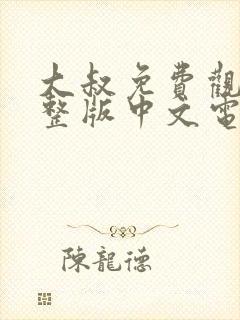 大叔免費觀
整版中文電
陳龍德